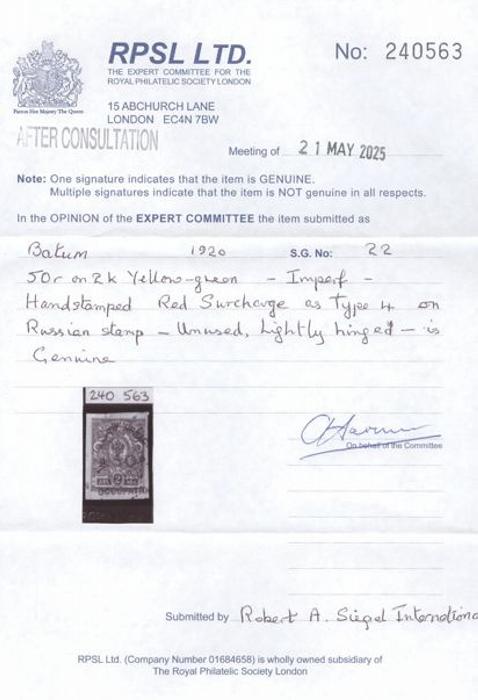 RPSL LTD.
THE EXPERT COMMITTEE FOR THE
ROYAL PHILATELIC SOCIETY LONDON
No: 240563
Patron Her Majesty The Queen
15 ABCHURCH LANE
LONDON EC4N 7BW
AFTER CONSULTATION
Meeting of 21 MAY 2025
Note: One signature indicates that the item is GENUINE.
Multiple signatures indicate that the item is NOT genuine in all respects.
In the OPINION of the EXPERT COMMITTEE the item submitted as
Batum 1920 S.G. No: 22
50r on 2k Yellow-green - Imperf -
Handstamped Red Surcharge as Type 4 on
Russian stamp - Unused, Lightly hinged - is
Genuine
240 563
On behalf of the Committee
Submitted by Robert A. Siegel Internationa
RPSL Ltd. (Company Number 01684658) is wholly owned subsidiary of
The Royal Philatelic Society London